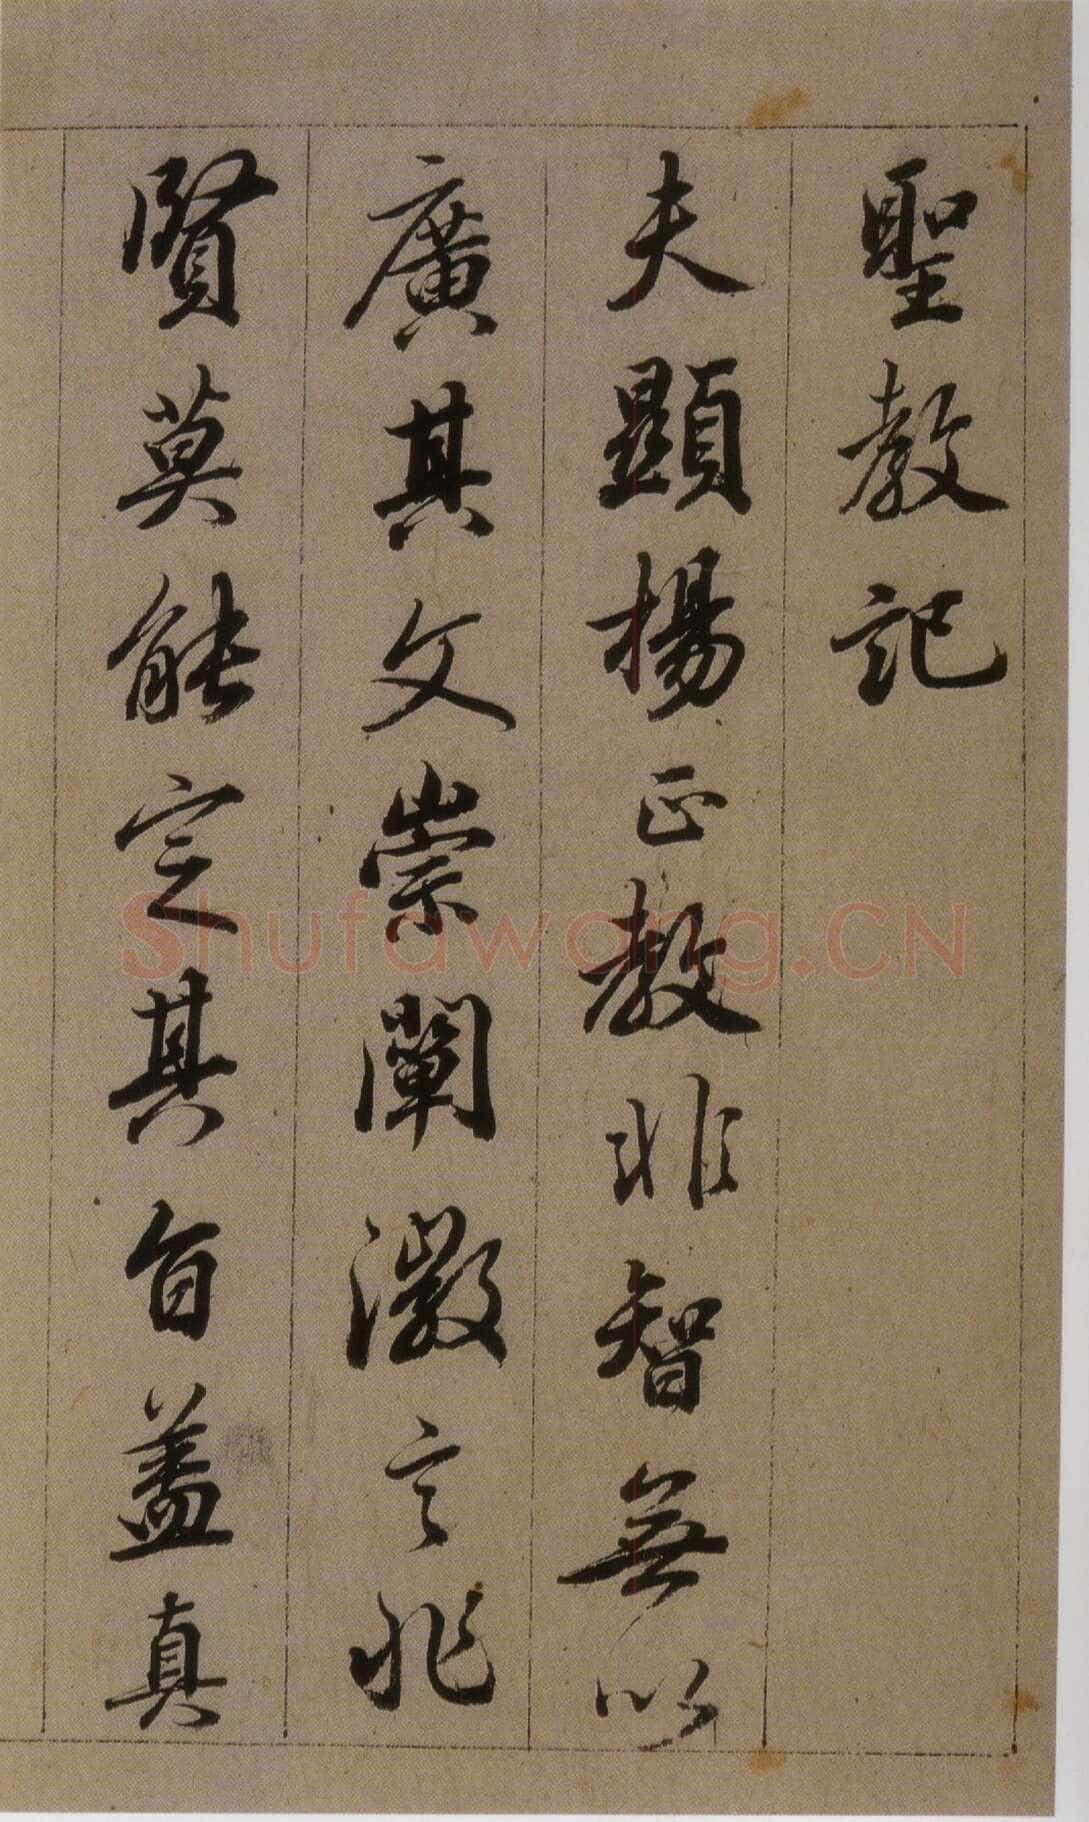 聖教記
夫顯揚正教非智無以
廣其文崇闡微言非
賢莫能定其旨蓋真
Shufawang.CN